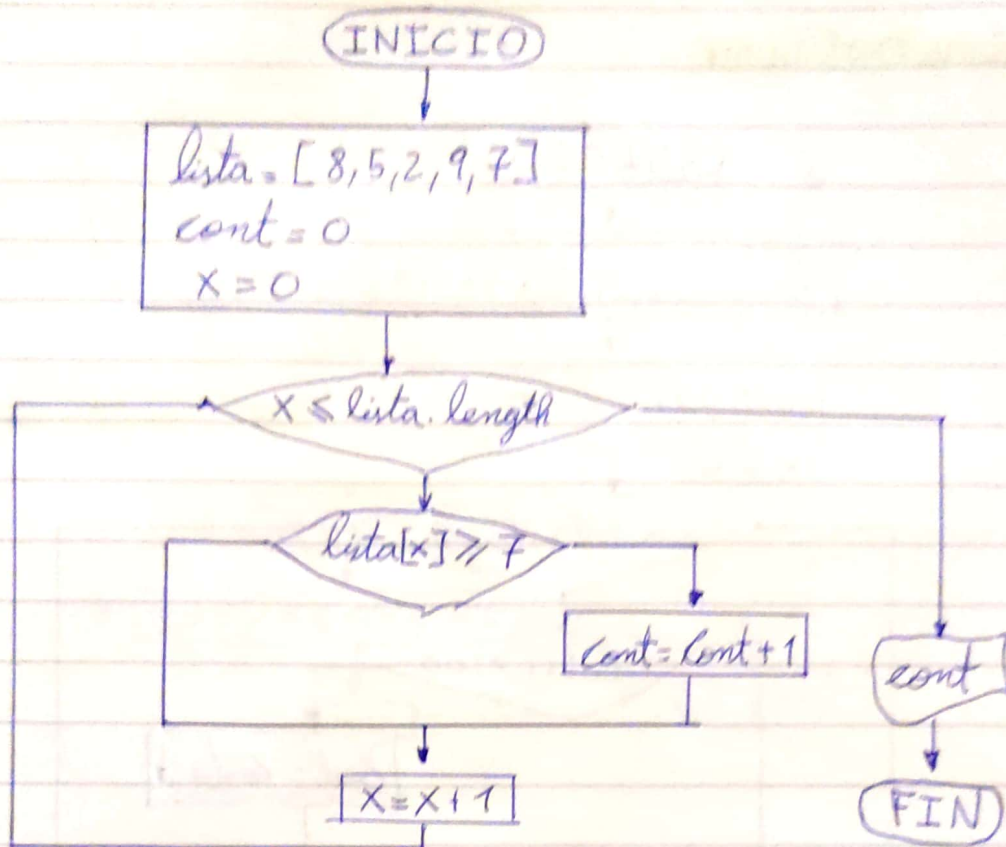 INICIO
lista = [8,5,2,9,7]
cont = 0
x = 0
x ≤ lista.length
lista[x] ≥ 7
cont = cont + 1
cont
x = x + 1
FIN